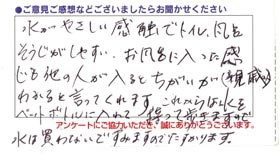 ●ご意見ご感想などございましたらお聞かせください
水がやさしい感触でトイレ、風呂
そうじがしやすい。お風呂に入った感
じも他の人が入るとちがいが
わかると言ってくれます。これからはしくを
ペットボトルに入れて持って歩きますので
アンケートにご協力いただき、誠にありがとうございます。
水は買わないですみますのでたすかります。